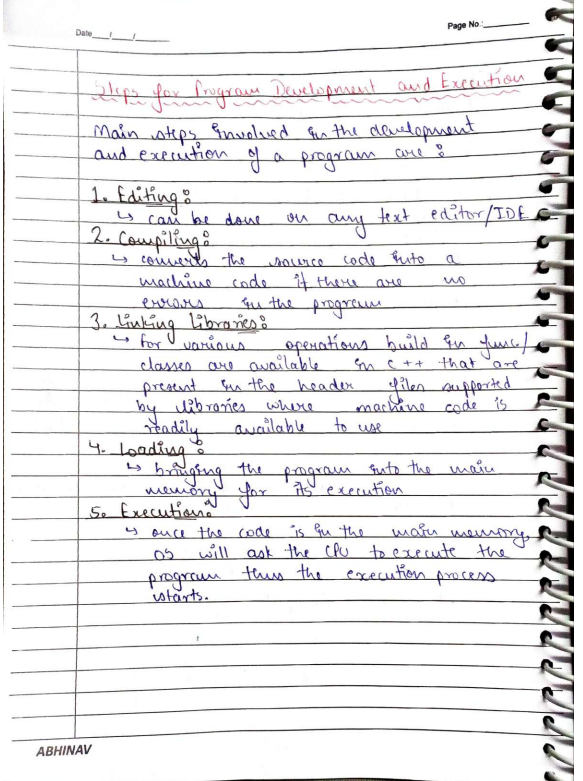 Date__/__/____
Page No.:______
Steps for Program Development and Execution
Main steps involved in the development
and execution of a program are :
1. Editing:
↳ can be done on any text editor/IDE
2. Compiling:
↳ converts the source code into a
machine code if there are no
errors in the program
3. Linking Libraries:
↳ For various operations build in func/
classes are available in C ++ that are
present in the header files supported
by libraries where machine code is
readily available to use
4. Loading :
↳ bringing the program into the main
memory for its execution
5. Execution:
↳ once the code is in the main memory,
OS will ask the CPU to execute the
program thus the execution process
starts.
ABHINAV